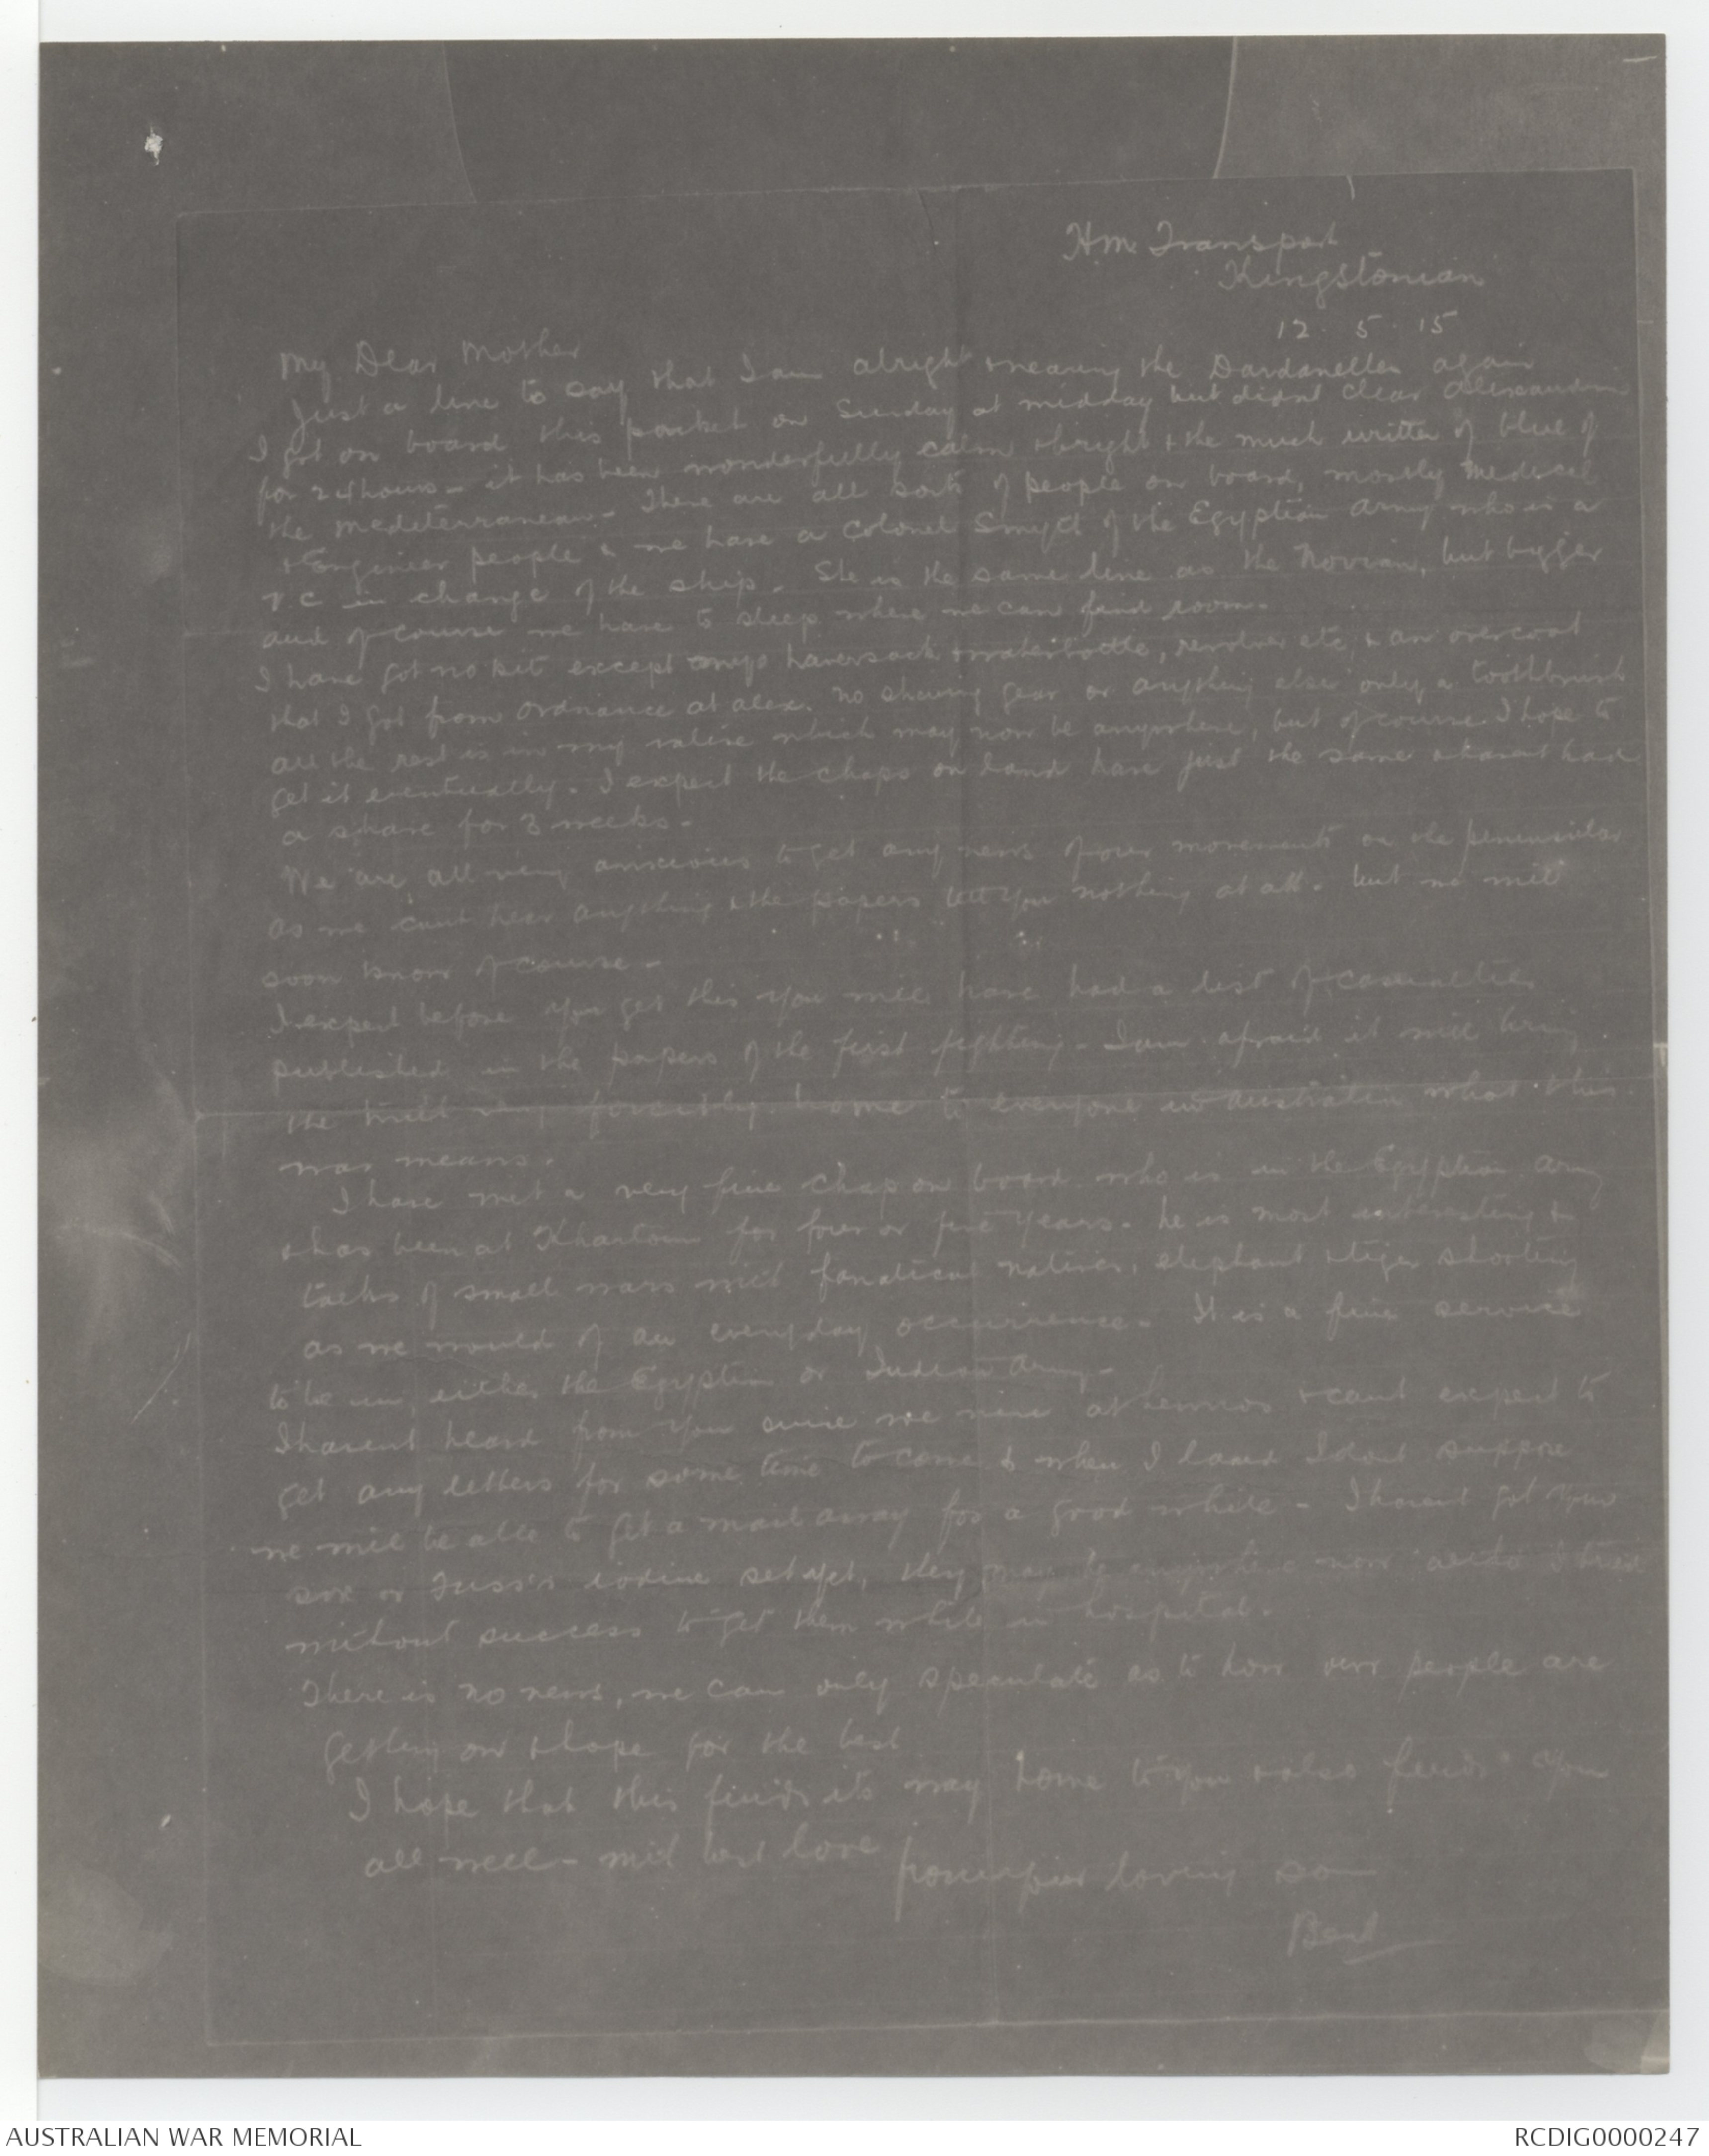 HM Transport
Kingstonian
12. 5. 15
My Dear Mother
Just a line to say that I am alright & nearing the Dardanelles again
I got on board this packet on Sunday at midday but didnt clear Alexandria
for 24 hours - it has been wonderfully calm & bright & the much written of blue of
the Mediterranean - There are all sorts of people on board, mostly Medical
& Engineer people & we have a Colonel Smyth of the Egyptian Army who is a
V.C in charge of the ship. She is the same line as the Novian, but bigger
and of course we have to sleep where we can find room.
I have got no kit except my haversack & waterbottle, revolver etc, & an overcoat
that I got from Ordnance at Alex. no shaving gear or anything else only a toothbrush
all the rest is in my valise which may now be anywhere, but of course I hope to
get it eventually. I expect the chaps on land have just the same & havent had
a shave for 3 weeks -
We are all very anxious to get any news of our movements on the peninsular
as we cant hear anything & the papers tell you nothing at all. but we will
soon know of course -
I expect before you get this you will have had a list of casualties
published in the papers of the first fighting - I am afraid it will bring
the truth very forcibly home to everyone in Australia what this
war means.
I have met a very fine chap on board who is in the Egyptian Army
& has been at Khartoum for four or five years - he is most interesting &
talks of small wars with fanatical natives, elephant & tiger shooting
as we would of an everyday occurrence - It is a fine service
to be in, either the Egyptian or Indian Army -
I havent heard from you since we were at Lemnos & cant expect to
get any letters for some time to come & when I land I dont suppose
we will be able to get a mail away for a good while - I havent got your
sox or iodine set yet, they may be anywhere now I tried
without success to get them while in hospital.
There is no news, we can only speculate as to how our people are
getting on & hope for the best
I hope that this finds its way home to you & also finds you
all well - with best love from your loving son
Bert